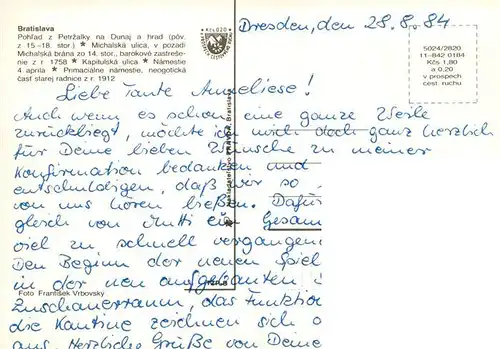 Bratislava
Pohľad z Petržalky na Dunaj a hrad (pôv.
z 15-18. stor.) ★ Michalská ulica, v pozadí
Michalská brána zo 14. stor., barokové zastreše-
nie z r. 1758 ★ Kapitulská ulica ★ Námestie
4. apríla ★ Primaciálne námestie, neogotická
časť starej radnice z r. 1912
Kčs 0,20
5024/2820
11-842 0184
Kčs 1,80
a 0,20
v prospech
cest. ruchu
Dresden, den 28.8.84
Liebe Tante Anneliese!
Auch wenn es schon eine ganze Weile
zurückliegt, möchte ich mich doch ganz herzlich
für Deine lieben Wünsche zu meiner
Konfirmation bedanken und
entschuldigen, daß wir so
von uns hören ließen. Dafür
gleich von Mutti ein Gesam
viel zu schnell vergangen
Den Beginn der neuen Spiel
in der neu aufgebauten
Foto František Vrbovský
Zuschauerraum, das Funktion
die Kantine zeichnen sich
aus. Herzliche Grüße von Deine